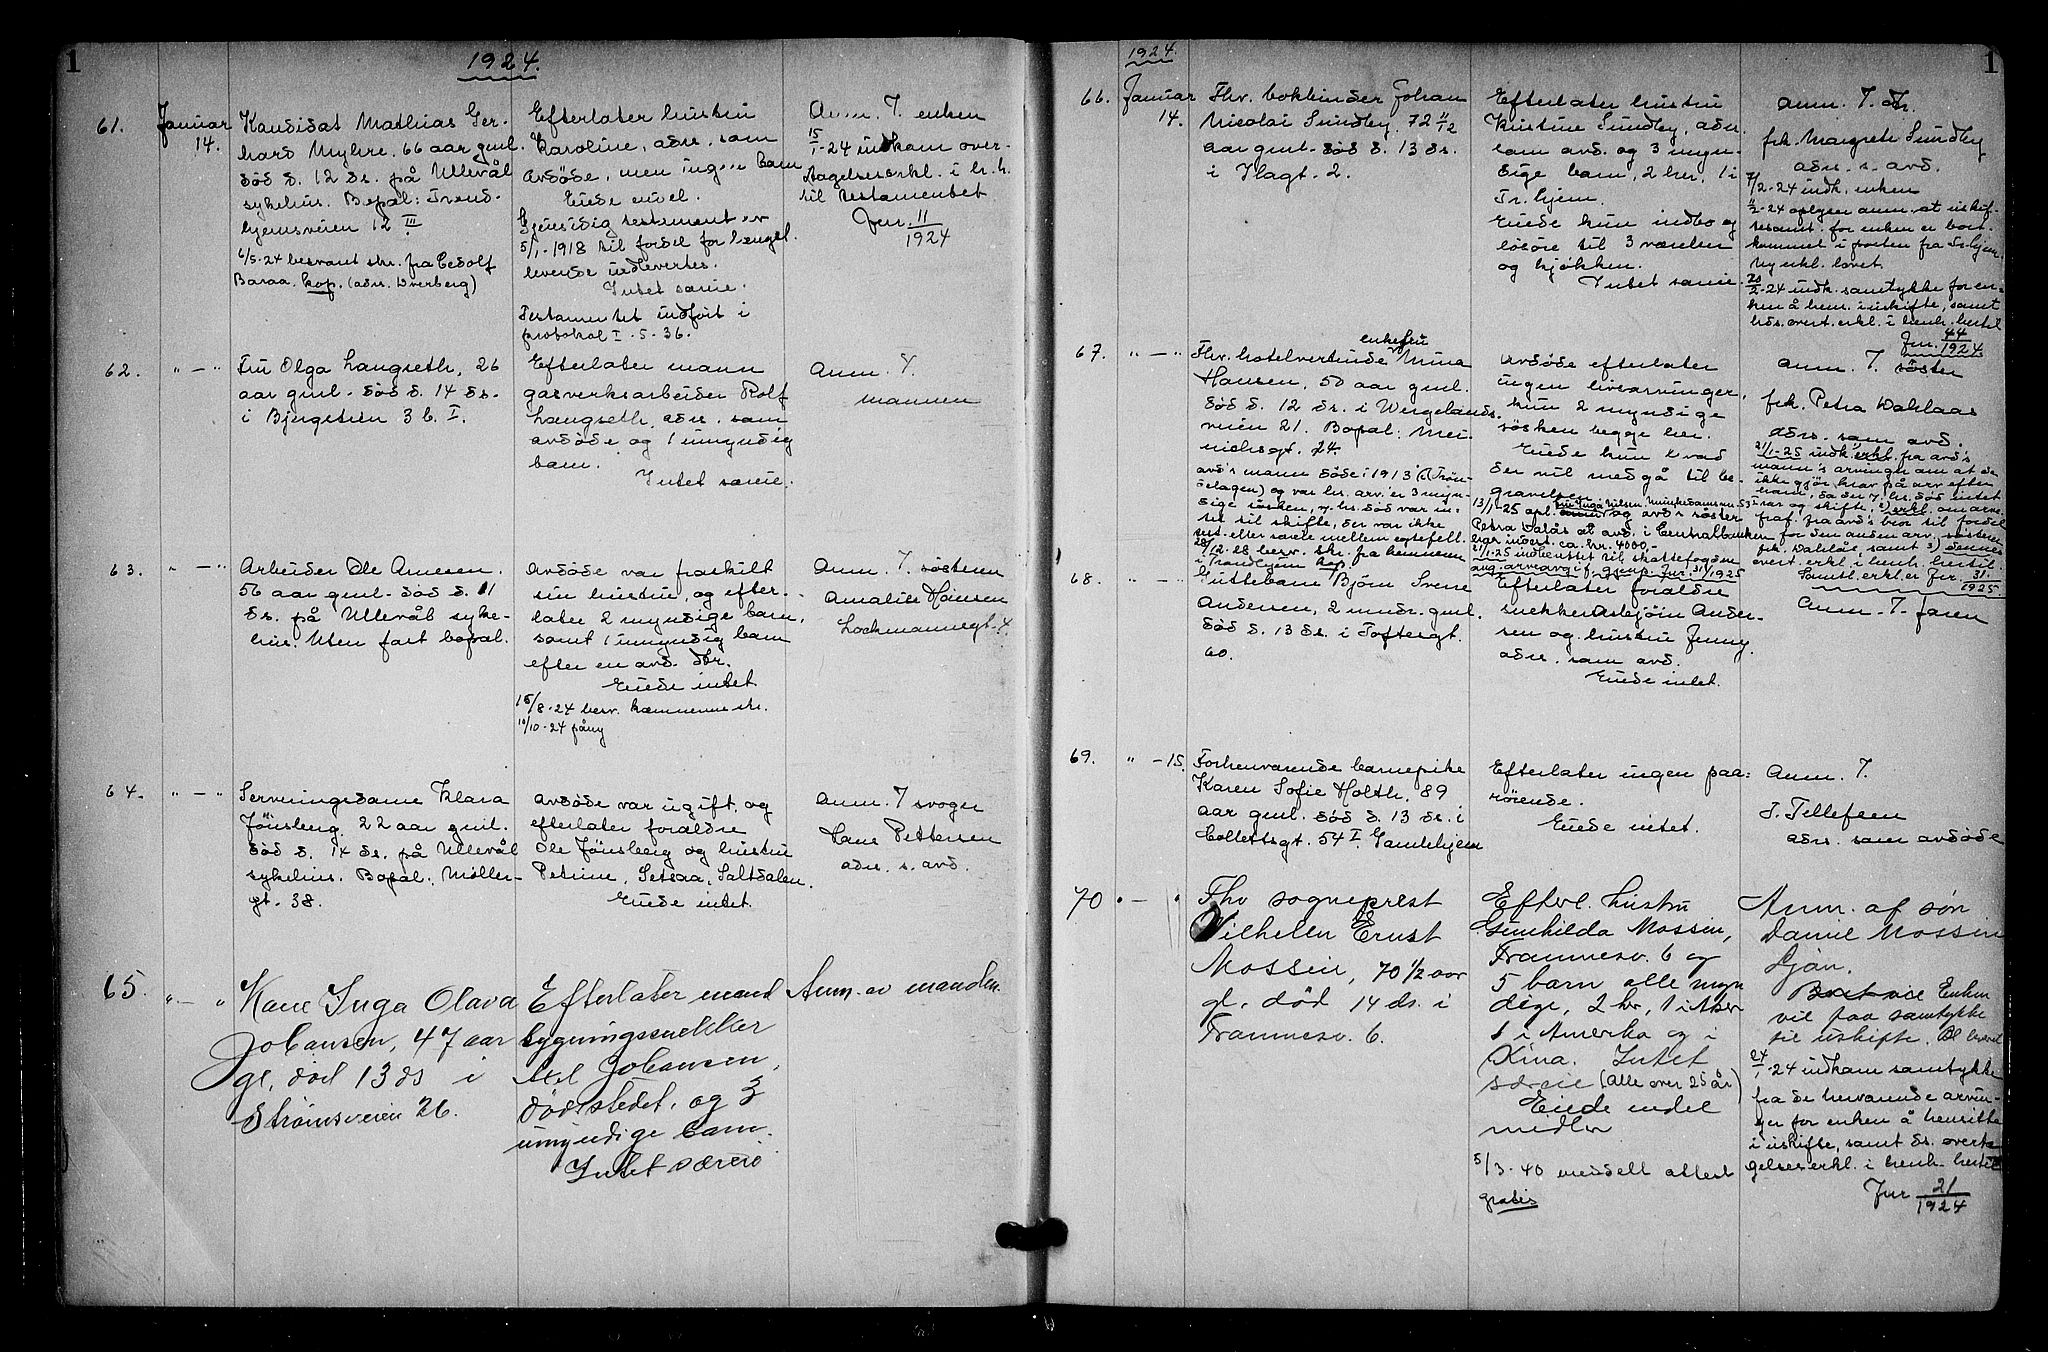 1
1924.
61.
Januar
14.
Kandidat Mathias Ger-
hard Myhre, 66 aar gml.
død d. 12 ds. på Ullevål
sykehus. Bopæl: Trond-
hjemsveien 12 III
6/5-24 besvart skr. fra Cedolf
Baraa. kop. (adr. Dverberg)
Efterlater hustru
Karoline, adr. som
avdøde, men ingen barn
Eiede endel.
Gjensidig testament av
5/1-1918 til fordel for længst
levende indlevertes.
Intet særeie.
Testamentet indført i
protokol I. S. 36.
Anm. 7. enken
15/1-24 indkom over-
tagelseserkl. i h. h.
til testamentet
Jnr. 11/1924
62.
" — "
Fru Olga Langseth, 26
aar gml. død d. 14 ds.
i Bjergstien 3 b. I.
Efterlater mann
gasverksarbeider Rolf
Langseth, adr. som
avdøde og 1 umyndig
barn.
Intet særeie.
Anm. 7.
mannen
63.
" — "
Arbeider Ole Arnesen.
56 aar gml. død d. 11
ds. på Ullevål syke-
hus. Uten fast bopæl.
Avdøde var fraskilt
sin hustru, og efter-
later 2 myndige barn,
samt 1 umyndig barn
efter en avd. dtr.
Eiede intet
15/8-24 besv. kæmnerens skr.
10/10-24 påny
Anm. 7. søsteren
Amalie Hansen
Lochmannsgt. 4.
64.
" — "
Serveringsdame Klara
Jönsberg, 22 aar gml.
død d. 14 ds. på Ullevål
sykehus. Bopæl: Møller-
gt. 38.
Avdøde var ugift, og
efterlater forældre
Ole Jönsberg og hustru
Petrine, Setsaa, Saltdalen.
Eiede intet.
Anm. 7 svoger
Hans Pettersen
adr. s. avd.
65.
" — "
Kone Inga Olava
Johansen, 47 aar
gl. död 13 ds i
Strömsveien 26.
Efterlater mand
bygningssnekker
Axel Johansen,
dödsstedet, og 3
umyndige barn.
Intet særeie
Anm. av manden.
1
1924.
66.
Januar
14.
Fhv. bokbinder Johan
Nicolai Sundby, 72 11/12
aar gml. død d. 13 ds.
i Ilagt. 2.
Efterlater hustru
Kristine Sundby, adr.
som avd. og 3 myn-
dige barn, 2 her, 1 i
Tr.hjem.
Eiede kun indbo og
løsøre til 3 værelser
og kjøkken.
Intet særeie.
Anm. 7. dtr.
frk. Margrete Sundby
adr. s. avd.
7/2-24 indk. enken
11/2-24 oplyser anm. at uskif-
tesamt. for enken er bort-
kommet i posten fra Tr.hjem
Ny erkl. lovet.
20/2-24 indk. samtykke for en-
ken å hens. i uskifte, samt
hds. overt. erkl. i henh. hertil
Jnr. 44/1924.
67.
" — "
Fhv. hotelvertinde enkefru Mina
Hansen, 50 aar gml.
død d. 12 ds. i Wergelands-
veien 21. Bopæl: Mei-
nichsgt. 24.
avd's mann døde i 1913 (i Trøn-
delagen) og var hs. arv. er 3 myn-
dige søsken, v. hs. død var in-
tet til skifte, der var ikke
test. eller særeie mellem egtefell.
28/12-28 besv. skr. fra kemneren
i Trondhjem kop
Avdøde efterlater
ingen livsarvinger,
kun 2 myndige
søsken begge her.
Eiede kun hvad
der vil medgå til be-
gravelsen
13/1-25 opl. fru Inga Nilsen, Munkedamsv. 53 I og avd's søster
Petra Dalås at avd. i Centralbanken
har indest. ca. kr. 4000.-
21/1-25 indberettet til skattefogden
ang. arveavgift. gjenp. Jnr. 31/1925
Anm. 7. søster
frk. Petra Dahlaas
adr. som avd.
21/1-25 indk. 1) erkl. fra avd's
mann's arvinger om at de
ikke gjør krav på arv efter
ham, da der v. hs. død intet
var og skifte, 2) erkl. om arve-
fraf. fra avd's bror til fordel
for den anden arv. søsteren
frk. Dahlås, samt 3) dennes
overt. erkl. i henh. hertil.
Samtl. erkl. er Jnr. 31/1925
68.
" — "
Guttebarn Bjørn Svene
Andersen, 2 mndr. gml.
død d. 13 ds. i Toftesgt.
60.
Efterlater forældre
snekker Asbjørn Ander-
sen og hustru Jenny.
adr. som avd.
Eiede intet.
Anm. 7. faren
69.
" — 15.
Forhenværende barnepike
Karen Sofie Holth, 89
aar gml. død d. 13 ds. i
Collettsgt. 54 I. Gamlehjem
Efterlater ingen paa-
rørende.
Eiede intet.
Anm. 7.
T. Tellefsen
adr. som avdøde
70
" — "
Fhv sogneprest
Vilhelm Ernst
Mossin, 70 1/2 aar
gl, död 14 ds. i
Framnesv. 6.
Efterl. hustru
Gunhilda Mossin,
Framnesv. 6 og
5 barn alle myn
dige, 2 hr, 1 i Aker
1 i Amerika og i
Kina. Intet
særeie (alle over 25 år)
Eiede endel
midler
5/3-40 meddelt attest
gratis
Anm. af søn
Daniel Mossin
Ljan.
Enken
vil paa samtykke
til uskifte. Bl bræd
24/1-24 indkom samtykke
fra de herværende arvin-
ger for enken å hensitte
i uskifte, samt ds. overta-
gelseserkl. i henh. hertil
Jnr 21/1924